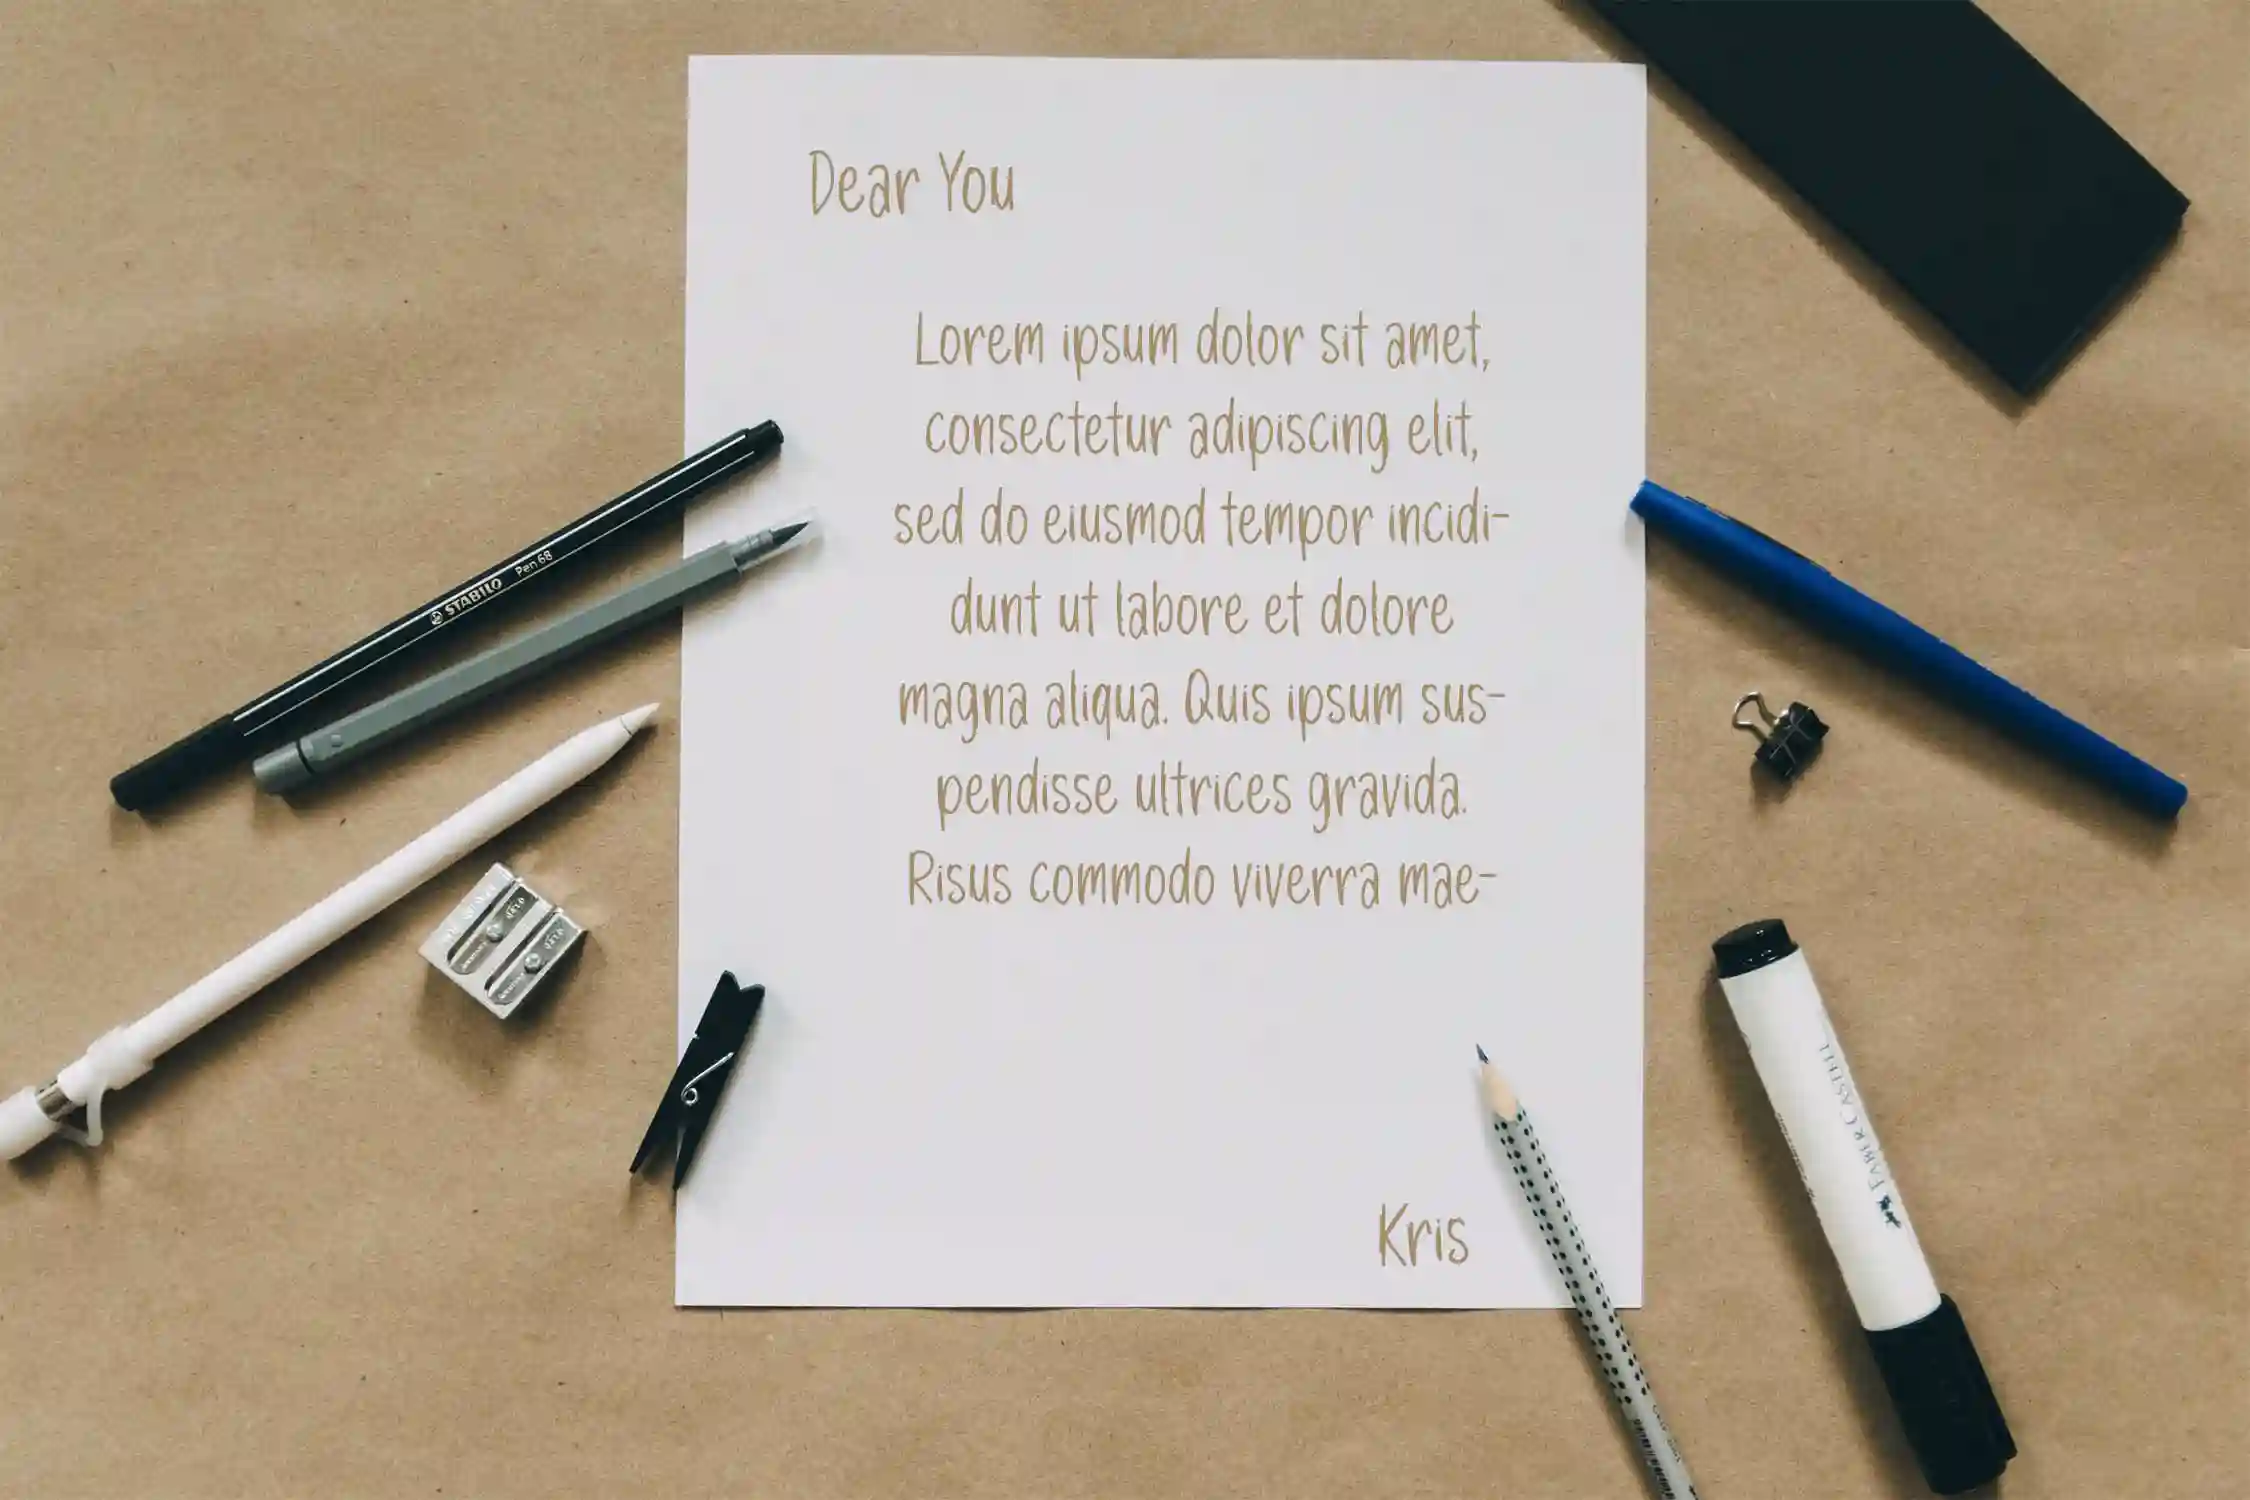 Dear You
Lorem ipsum dolor sit amet,
consectetur adipiscing elit,
sed do eiusmod tempor incidi-
dunt ut labore et dolore
magna aliqua. Quis ipsum sus-
pendisse ultrices gravida.
Risus commodo viverra mae-
Kris
STABILO Pen 68
FABER CASTELL